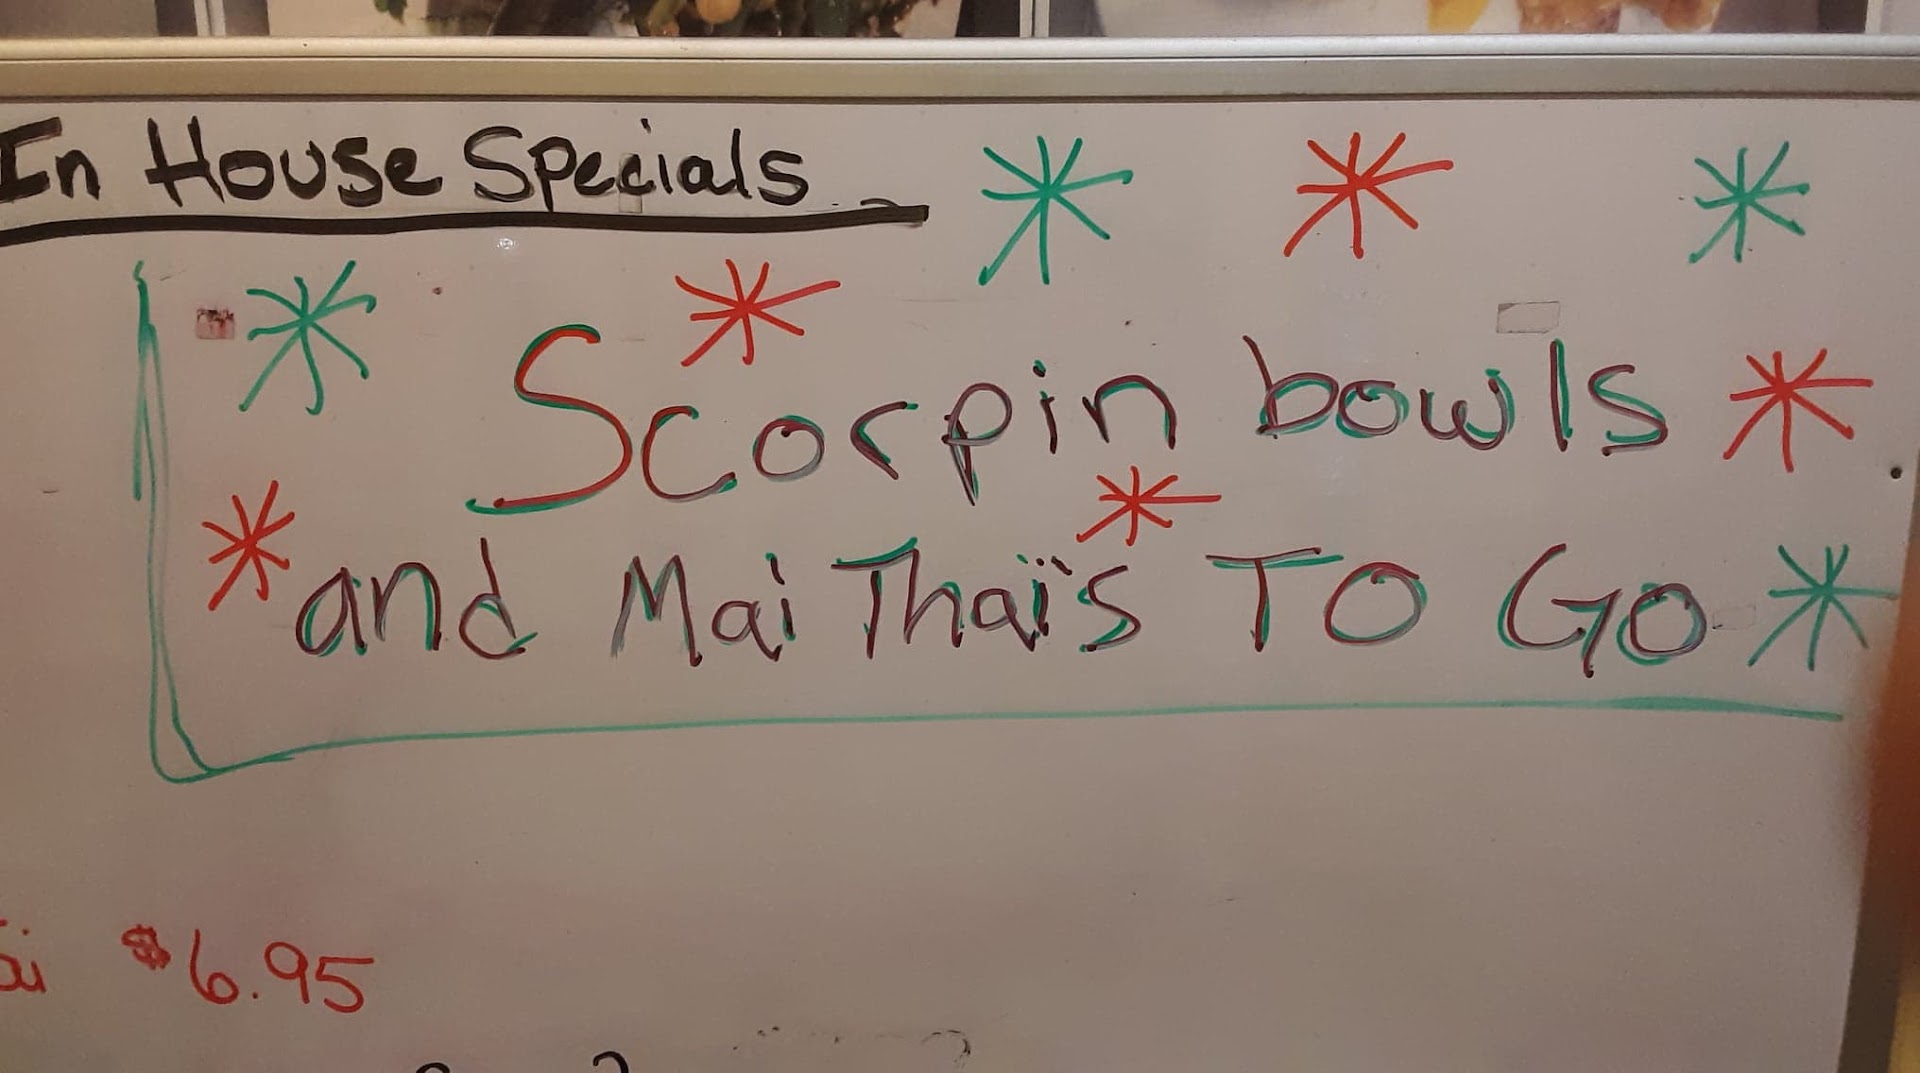 In House Specials
Scorpin bowls
and Mai Thai's TO GO
$6.95